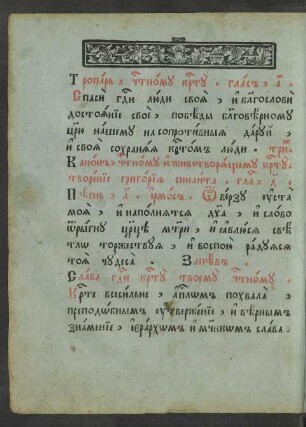 Тропарь, чтⷭ҇ному крⷭ҇ту. гласъ, а҃.
Спаси гдⷭ҇и люди своѧ̀, и҆ благослови
достоѧнїе своѐ, побѣды благовѣрному
цр҃ю нашему на сопротивныѧ даруй,
и҆ своѧ̀ сохранѧѧ крⷭ҇томъ люди.
Канонъ, чтⷭ҇ному и҆ животворѧщему крⷭ҇ту,
творенїе григорїѧ синаита. гласъ, д҃.
Пѣснь, а҃. і҆рмосъ. Ѿверзу ѹста
моѧ̀, и҆ наполнѧтсѧ дх҃а, и҆ слово
ѿрыгну цр҃цѣ мт҃ри, и҆ ꙗвлюсѧ свѣ
тлѡ торжествуѧ, и҆ воспою радуѧсѧ
тоѧ̀ чудеса. Запѣвъ.
Слава гдⷭ҇и крⷭ҇ту твоему чтⷭ҇ному.
Крⷭ҇те всесильне, а҆пⷭ҇лѡмъ похвала,
преподѡбнымъ ѹтвержденїе, и҆ вѣрнымъ
знаменїе, і҆ерархѡмъ и҆ мч҃нкѡмъ слава.